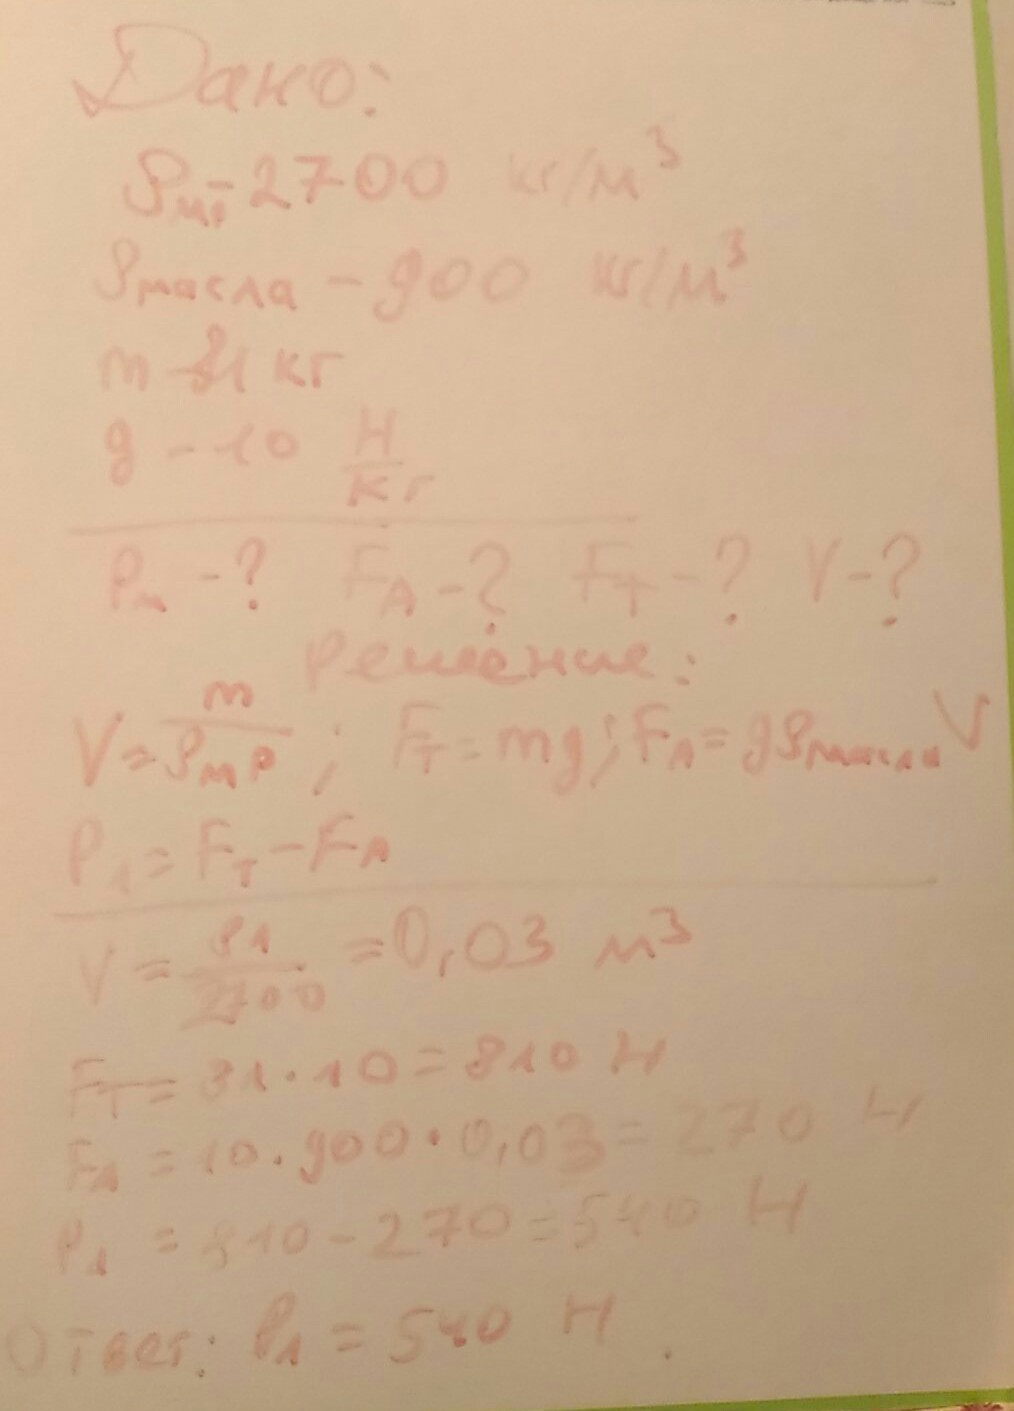 Дано:
ρмр - 2700 кг/м³
ρмасла - 900 кг/м³
m - 81 кг
g - 10 Н/кг
Pм - ? FА - ? FТ - ? V - ?
Решение:
V = m/ρмр ; FТ = mg; FА = gρмасла V
P₁ = FТ - FА
V = 81/2700 = 0,03 м³
FТ = 81 · 10 = 810 Н
FА = 10 · 900 · 0,03 = 270 Н
P₁ = 810 - 270 = 540 Н
Ответ: P₁ = 540 Н.